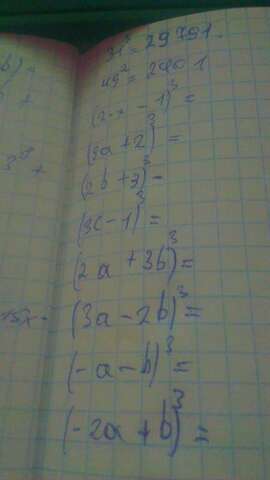 31³ = 29791.
49² = 2401
(2x - 1)³ =
(3a + 2)³ =
(2b + 3)³ =
(3c - 1)³ =
(2a + 3b)³ =
(3a - 2b)³ =
(-a - b)³ =
(-2a + b)³ =